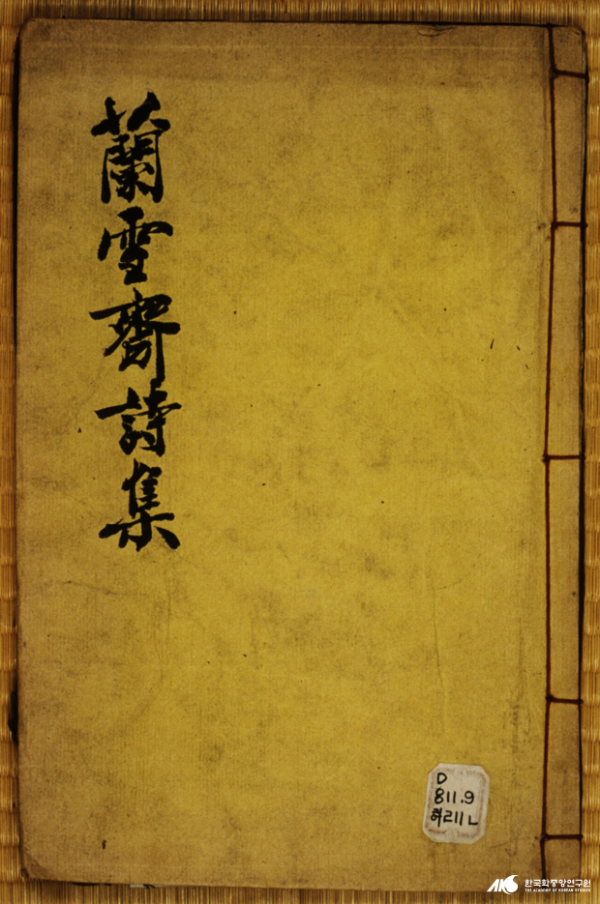 蘭雪齋詩集
D
811.9
허211ㄴ
한국학중앙연구원
THE ACADEMY OF KOREAN STUDIES